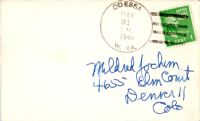 ODESSA
MAY
31
1940
W. VA.
Mildred Jochim
4655 Elm Court
Denver 11
Colo